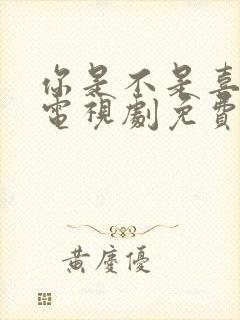 你是不是喜
電視劇免費
黃慶優